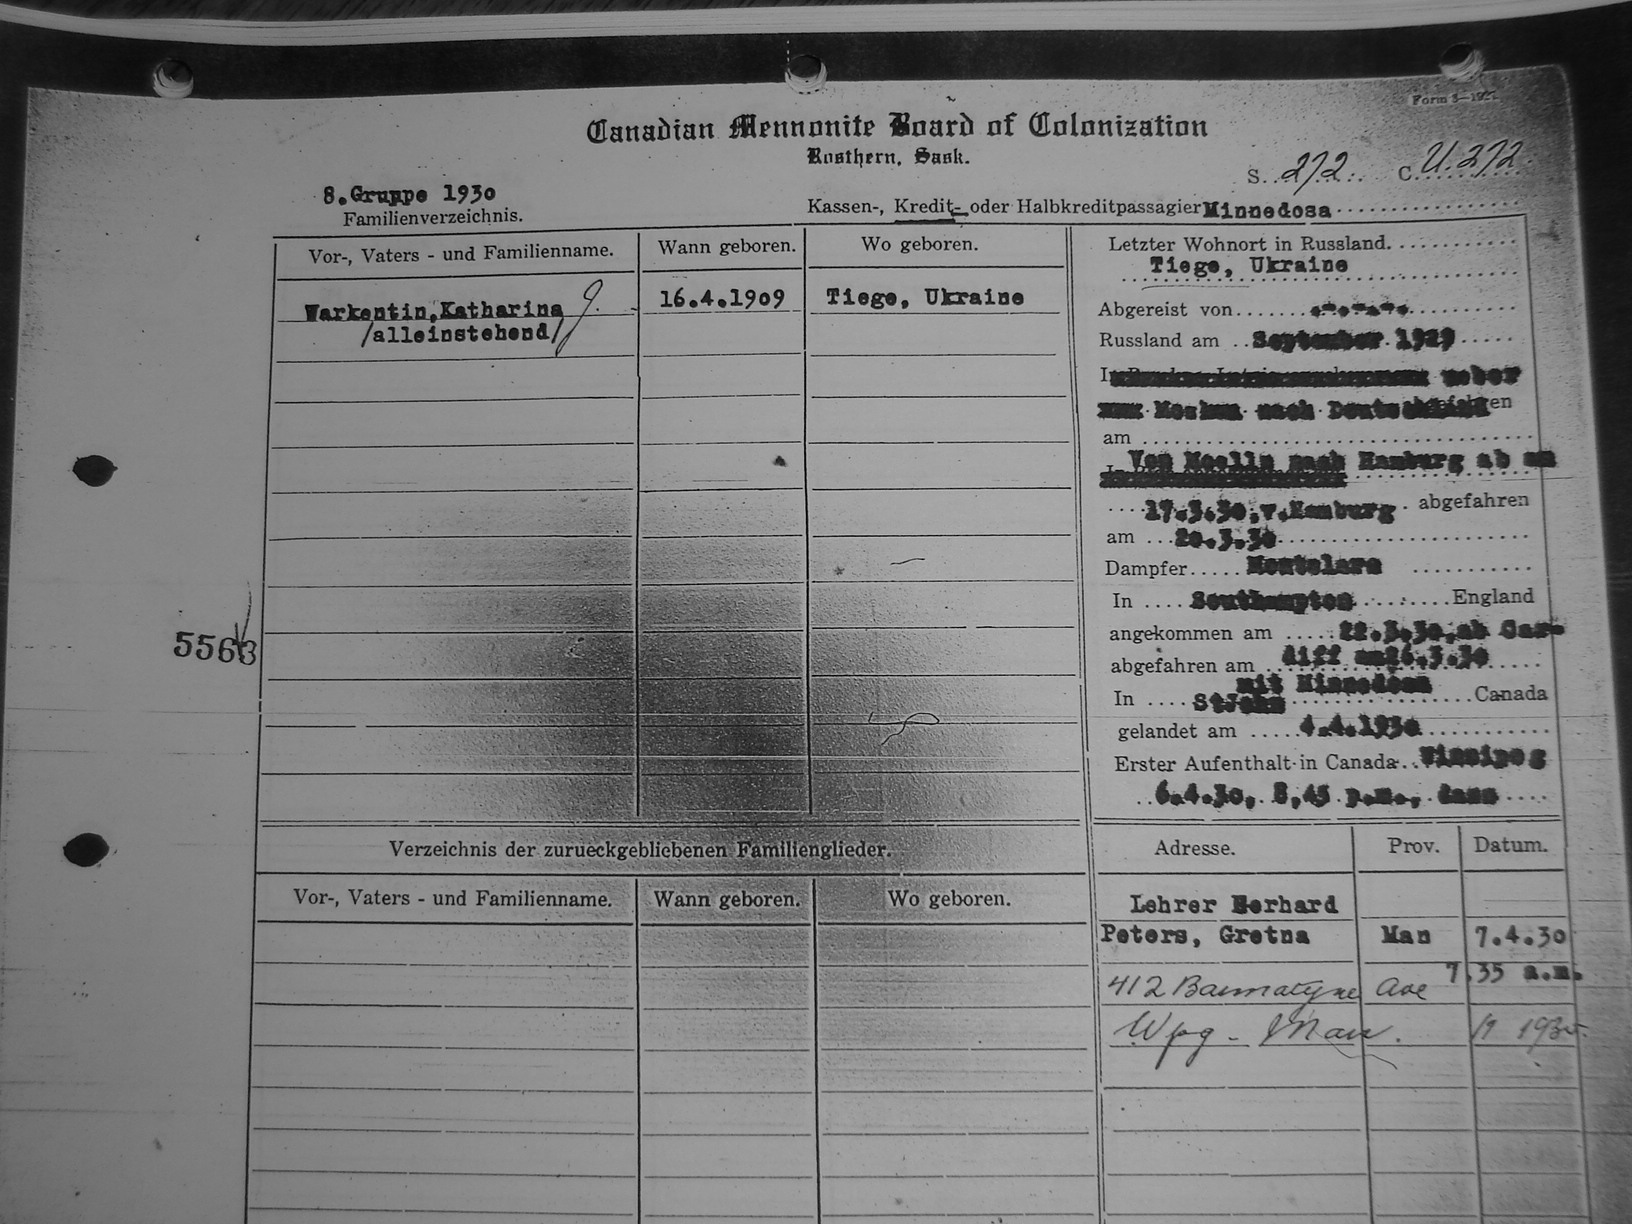 Form 3—192
Canadian Mennonite Board of Colonization
Rosthern, Sask.
S. 272 C. U.272
8.Gruppe 1930
Familienverzeichnis.
Kassen-, Kredit- oder Halbkreditpassagier Minnedosa
Vor-, Vaters - und Familienname. Wann geboren. Wo geboren.
Warkentin,Katharina J. 16.4.1909 Tiege, Ukraine
/alleinstehend/
5563
Letzter Wohnort in Russland.
Tiege, Ukraine
Abgereist von
Russland am September 1929
ueber
Moskau nach Deutschland en
am
Von Moelln nach Hamburg ab am
17.3.30,v.Hamburg abgefahren
am 20.3.30
Dampfer Montclare
In Southampton England
angekommen am 22.3.30,ab Car-
abgefahren am diff am 26.3.30
mit Minnedosa
In StJohn Canada
gelandet am 4.4.1930
Erster Aufenthalt in Canada Winnipeg
6.4.30, 8,45 p.m., dann
Adresse. Prov. Datum.
Lehrer Gerhard
Peters, Gretna Man 7.4.30
7.35 a.m.
412 Bannatyne Ave
Wpg - Man.
Verzeichnis der zurueckgebliebenen Familienglieder.
Vor-, Vaters - und Familienname. Wann geboren. Wo geboren.